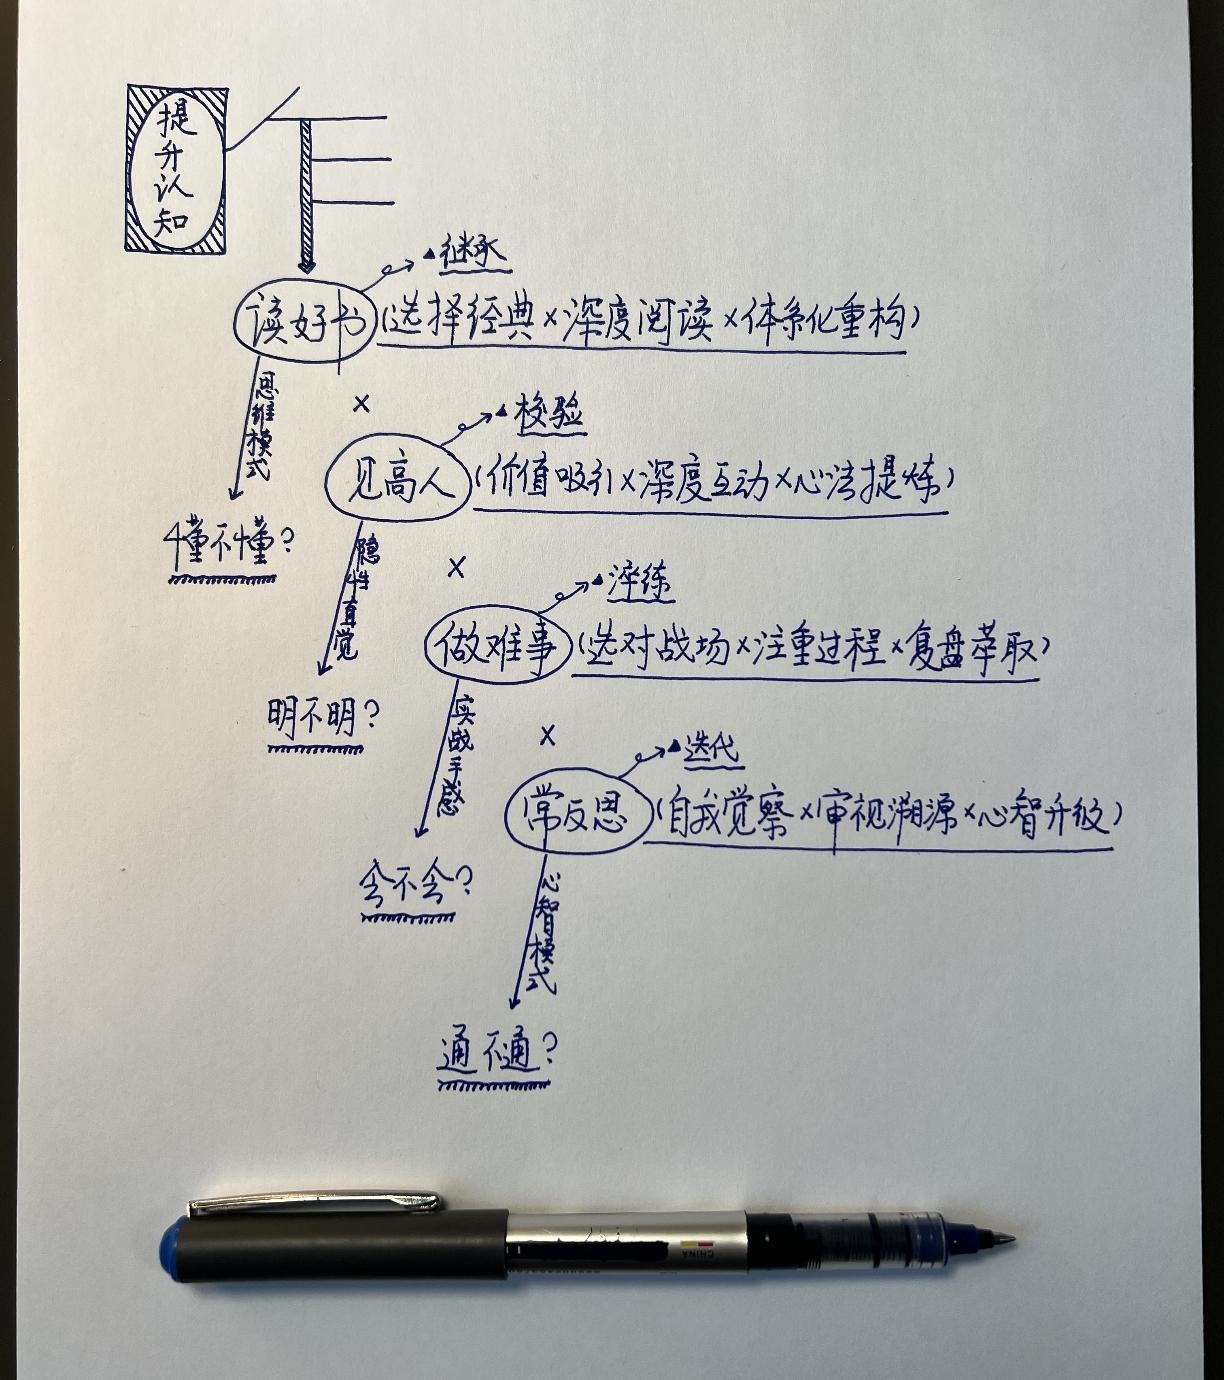 提升认知
继承
读好书(选择经典×深度阅读×体系化重构)
思维模式
×
校验
见高人(价值吸引×深度互动×心法提炼)
懂不懂?
隐性直觉
×
淬练
做难事(选对战场×注重过程×复盘萃取)
明不明?
实战手感
×
迭代
常反思(自我觉察×审视溯源×心智升级)
会不会?
心智模式
通不通?
CHINA